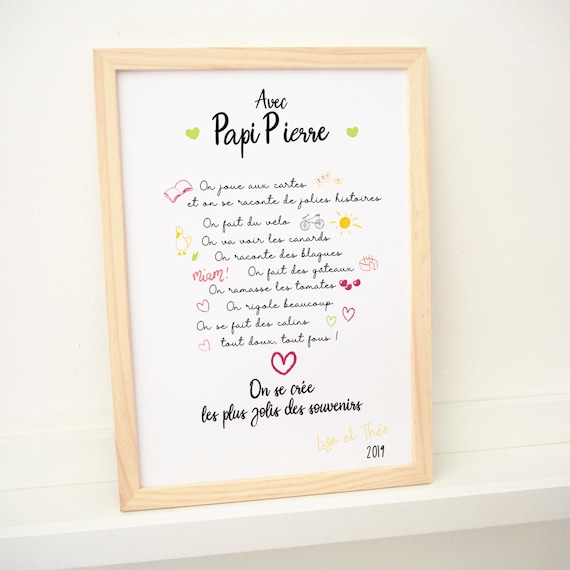 Avec
Papi Pierre
On joue aux cartes
et on se raconte de jolies histoires
On fait du velo
On va voir les canards
On raconte des blagues
miam! On fait des gateaux
On ramasse les tomates
On rigole beaucoup
On se fait des calins
tout doux, tout fous !
On se crée
les plus jolis des souvenirs
Lisa et Théo
2019